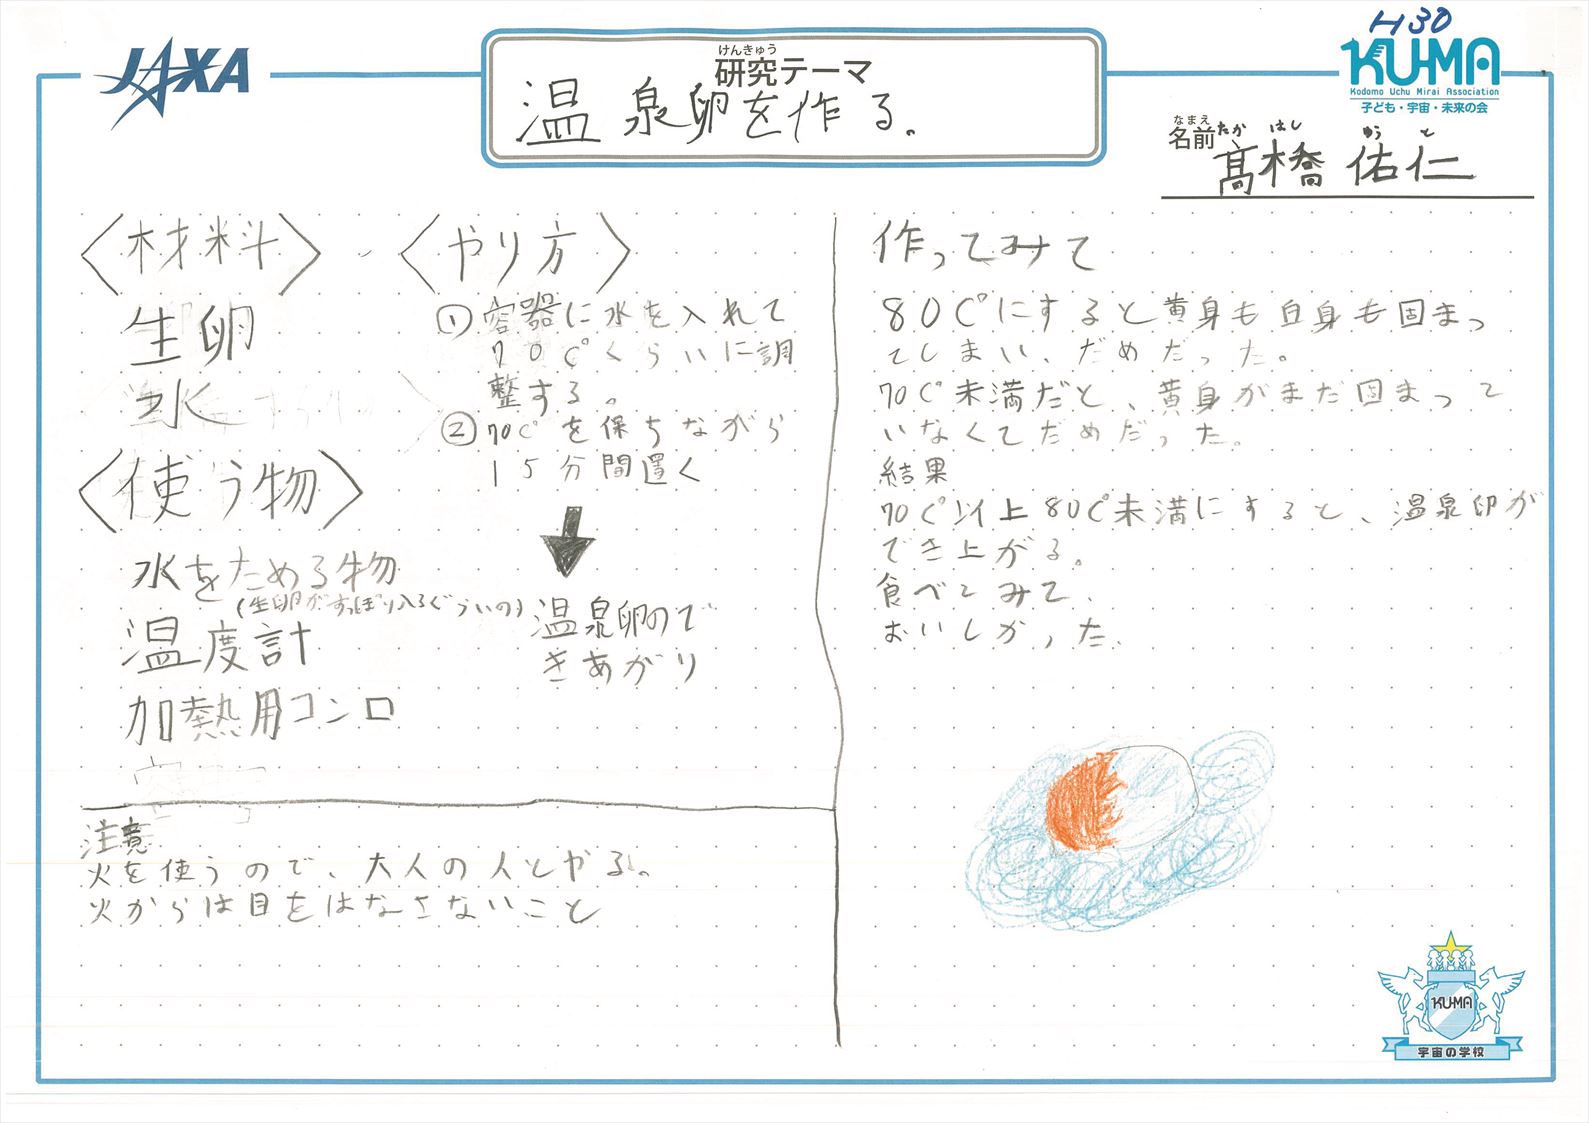 H30
JAXA
けんきゅう
研究テーマ
温泉卵を作る。
KU-MA
Kodomo Uchu Mirai Association
子ども・宇宙・未来の会
なまえ
名前
たか はし ゆう と
髙橋 佑仁
〈材料〉
生卵
水
〈使う物〉
水をためる物
(生卵がすっぽり入るぐらいの)
温度計
加熱用コンロ
〈やり方〉
① 容器に水を入れて
70℃くらいに調
整する。
② 70℃を保ちながら
15分間置く
温泉卵ので
きあがり
注意
火を使うので、大人の人とやる。
火からは目をはなさないこと
作ってみて
80℃にすると黄身も白身も固まっ
てしまい、だめだった。
70℃未満だと、黄身がまだ固まって
いなくてだめだった。
結果
70℃以上80℃未満にすると、温泉卵が
でき上がる。
食べてみて、
おいしかった。
KU-MA
宇宙の学校